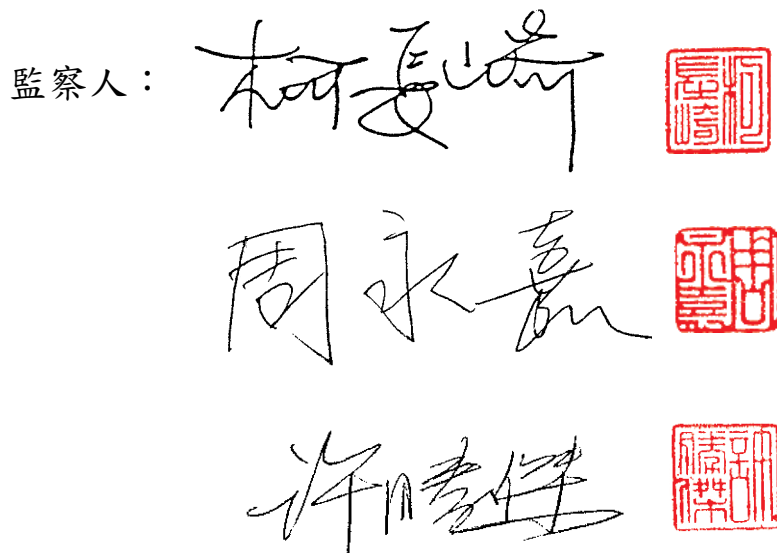 監察人：柯長崎
周永嘉
許勝傑